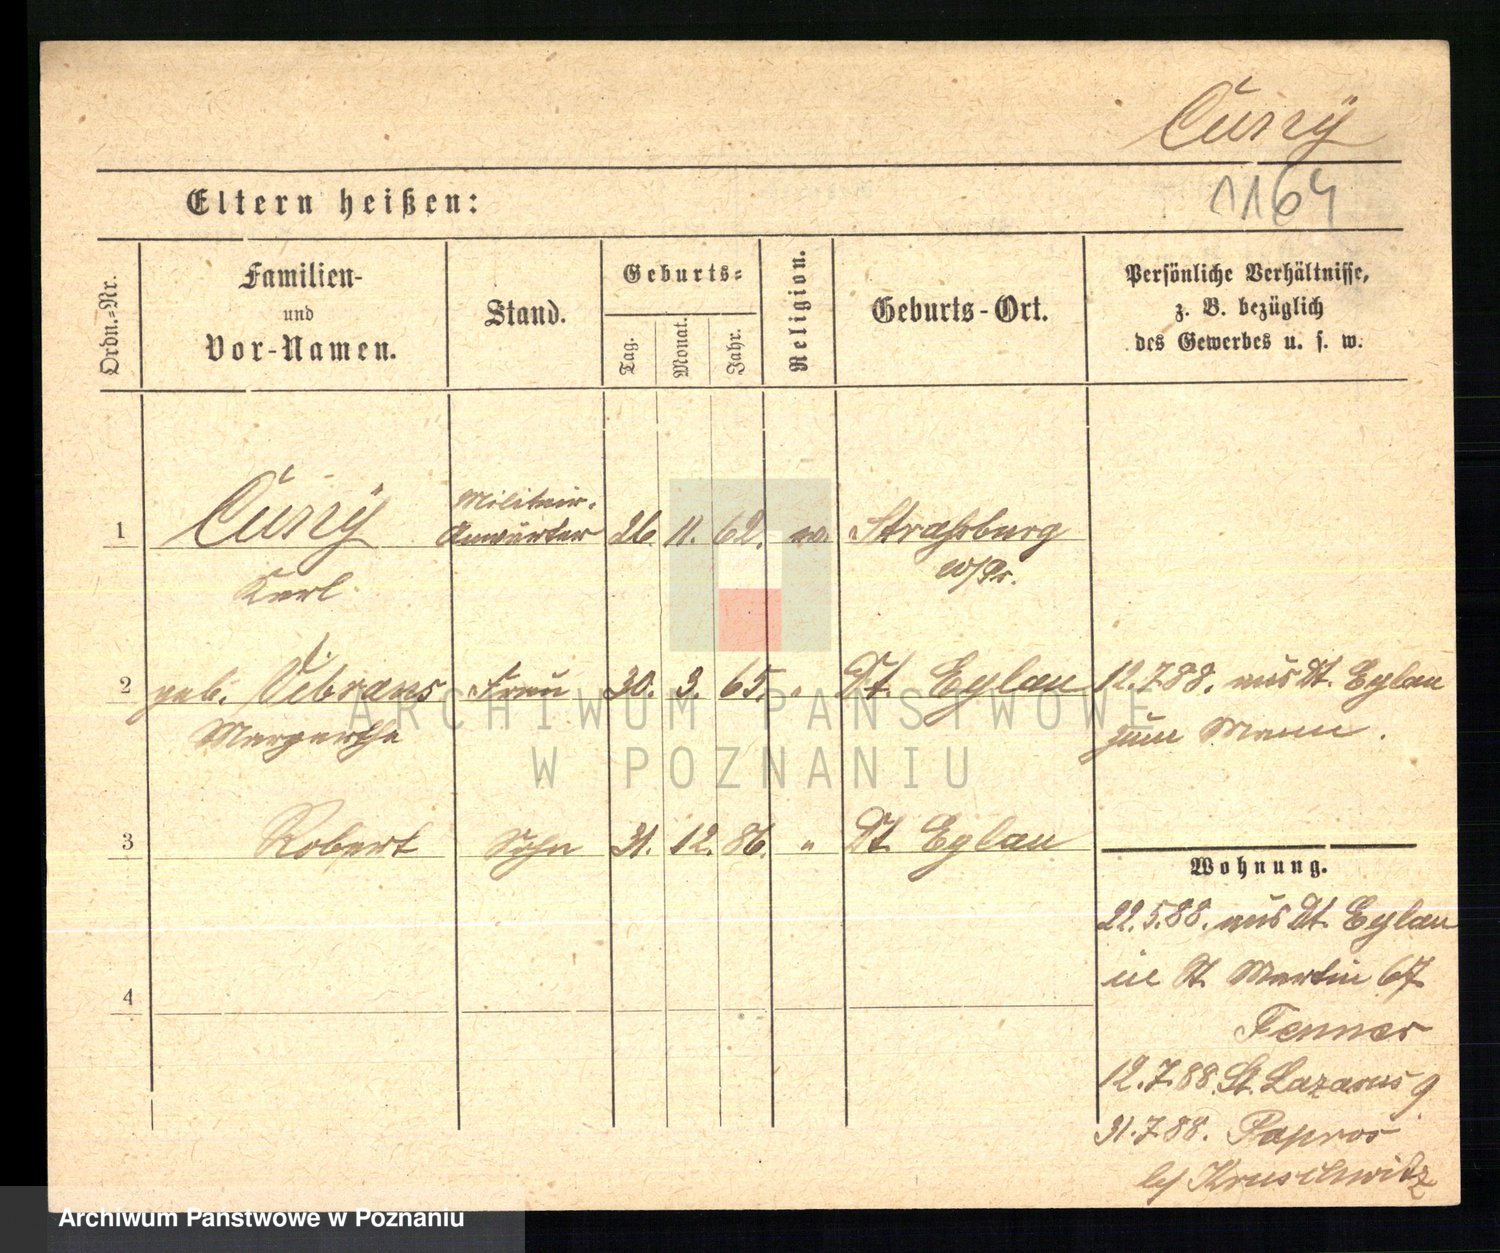 Cuny
1164
Eltern heißen:
Ordn.-Nr.
Familien-
und
Vor-Namen.
Stand.
Geburts-
Tag.
Monat.
Jahr.
Religion.
Geburts-Ort.
Persönliche Verhältnisse,
z. B. bezüglich
des Gewerbes u. s. w.
1
Militair-
Anwärter
26. 11. 62.
Straßburg
w/Pr.
Karl
2 geb.
Frau 30. 3. 65. "
Dt. Eylau
12.7.88. aus Dt. Eylau
Margarethe
zum Mann.
3 Robert
Sohn 31. 12. 86. "
Dt. Eylau
Wohnung.
22.5.88. aus Dt. Eylau
in St. Martin 67
Fenner
4
12.7.88. St. Lazarus 9
31.7.88. Papros
b/ Kruschwitz
ARCHIWUM PAŃSTWOWE
W POZNANIU
Archiwum Państwowe w Poznaniu